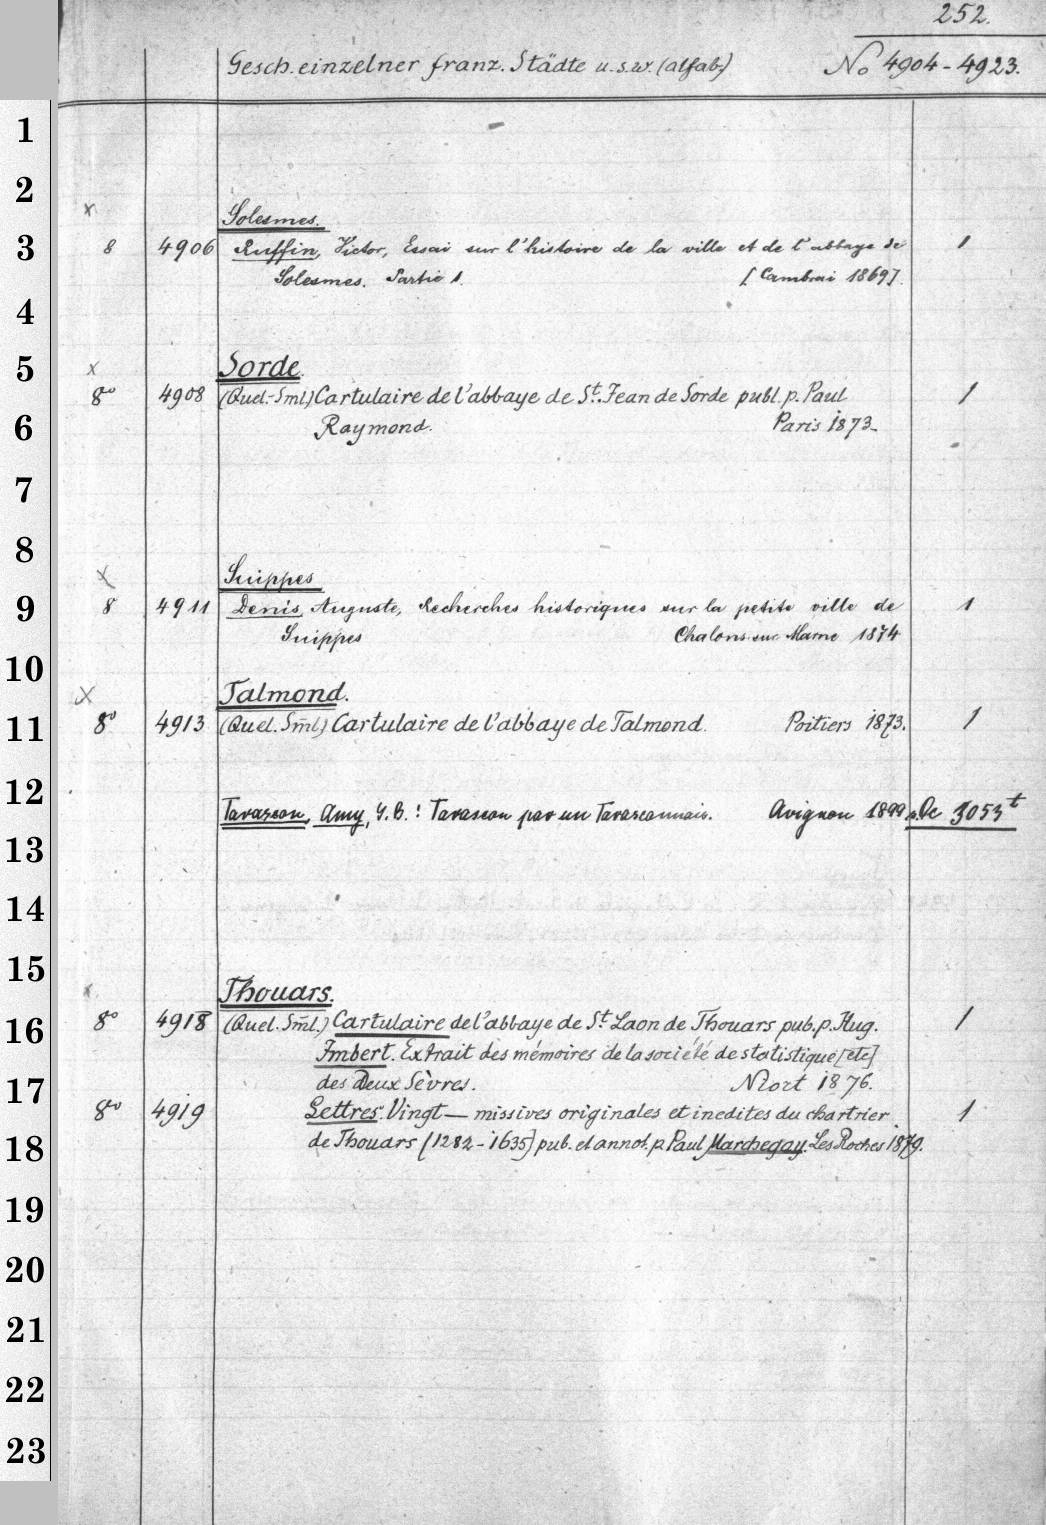 252.
Gesch. einzelner franz. Städte u. s. w. (alfab.) No 4904-4923.
1
2
x
Solesmes.
3 8 4906 Ruffin, Victor, Essai sur l'histoire de la ville et de l'abbaye de 1
Solesmes. Partie 1. [Cambrai 1869].
4
5 x Sorde.
8o 4908 (Quel.-Sml.) Cartulaire de l'abbaye de St. Jean de Sorde publ. p. Paul 1
6 Raymond. Paris 1873.
7
8
x Suippes
9 8 4911 Denis, Auguste, Recherches historiques sur la petite ville de 1
Suippes Chalons-sur-Marne 1874
10
x Talmond.
11 8o 4913 (Quel. Sml.) Cartulaire de l'abbaye de Talmond. Poitiers 1873. 1
12
Tarascon, Amy, G. B.: Tarascon par un Tarasconnais. Avignon 1899 s. Dc 3053t
13
14
15
x Thouars.
16 8o 4918 (Quel. Sml.) Cartulaire de l'abbaye de St. Laon de Thouars pub. p. Hug. 1
Imbert. Extrait des mémoires de la société de statistique [etc]
17 des Deux Sèvres. Niort 1876.
8o 4919 Lettres. Vingt — missives originales et inedites du chartrier 1
18 de Thouars [1282-1635] pub. et annot. p. Paul Marchegay. Les Roches 1879.
19
20
21
22
23